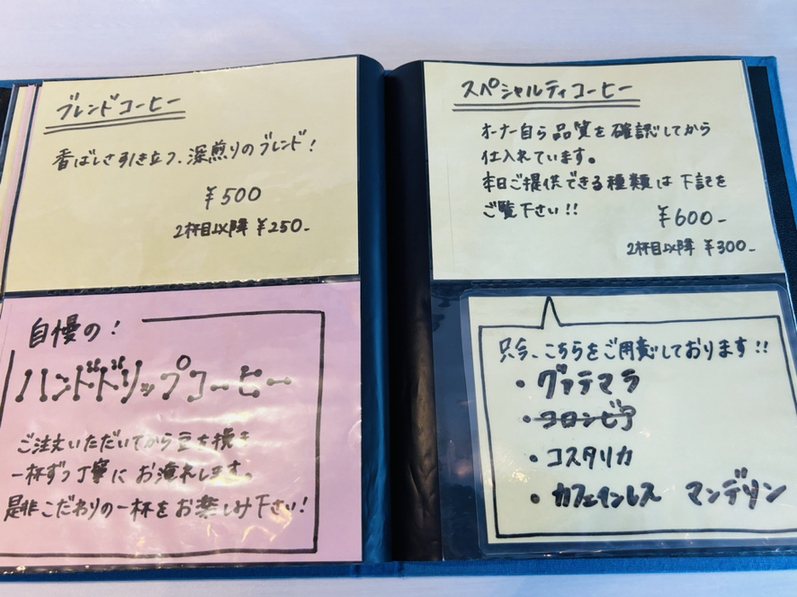 ブレンドコーヒー
香ばしさ引き立つ、深煎りのブレンド!
¥500
2杯目以降 ¥250-
自慢の!
ハンドドリップコーヒー
ご注文いただいてから豆を挽き
一杯ずつ丁寧に お淹れします。
是非こだわりの一杯をお楽しみ下さい!
スペシャルティコーヒー
オーナー自ら品質を確認してから
仕入れています。
本日ご提供できる種類は下記を
ご覧下さい!!
¥600-
2杯目以降 ¥300-
只今、こちらをご用意しております!!
・グァテマラ
・コロンビア
・コスタリカ
・カフェインレス マンデリン